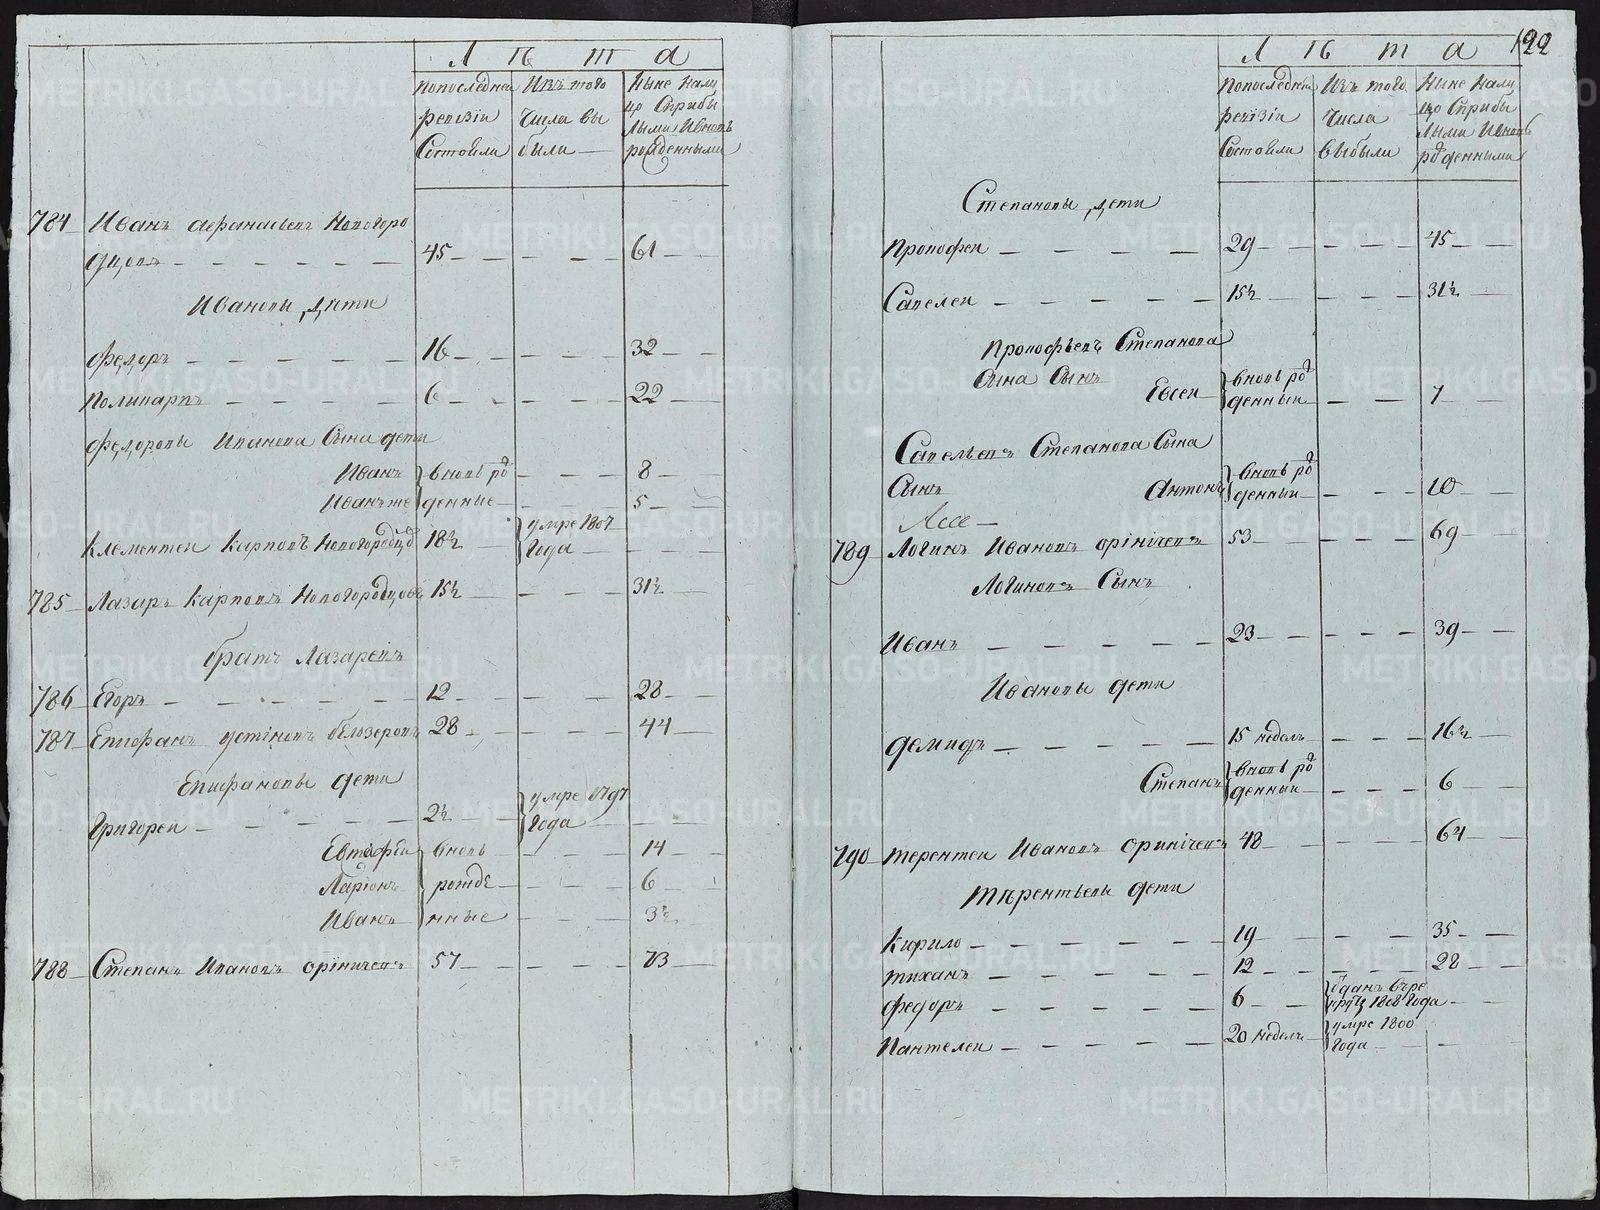 Лѣта
Попоследнеи Изъ того Ныне Нали
ревизіи Числа вы цо Сприбы
Состояли были лыми Ивновь
рожденными
784 Иванъ Афанасьевъ Новогоро
дцовъ 45 61
Ивановы дѣти
Федоръ 16 32
Поликарпъ 6 22
Федоровы Иванова Сына дети
Иванъ вновь ро 8
Иванъ же жденные 5
Клементеи Карповъ Новогородцов 18½ умре 1807
Года
785 Лазарь Карповъ Новогородцовъ 15½ 31½
братъ Лазаревъ
786 Егоръ 12 28
787 Епифанъ Устіновъ бѣлозеровъ 28 44
Епифановы дети
Григореи 2½ умре 1797
Года
Евтифеи вновь 14
Ларіонъ рожде 6
Иванъ нные 3½
788 Степанъ Ивановъ орініченъ 57 73
122
Лѣта
Попоследнеи Изъ того Ныне Нали
ревізіи Числа цо Сприбы
Состояли выбыли лыми Ивновь
рожденными
Степановы дети
Прокофеи 29 45
Савелеи 15½ 31½
Прокофьевъ Степанова
Сына Сынъ Евсеи вновь рож
денныи 7
Савельевъ Степанова Сына
Сынъ Антонъ вновь рож
денныи 10
789 Логинъ Ивановъ орініченъ 53 69
Логиновъ Сынъ
Иванъ 23 39
Ивановы дети
Демидъ 15 недель 16½
Степанъ вновь рож
денныи 6
790 Терентеи Ивановъ ориніченъ 48 64
Терентьевы дети
Кирило 19 35
Тиханъ 12 28
Федоръ 6 Отданъ въ ре
круты 1808 Года
Пантелеи 20 недель умре 1800
Года
METRIKI.GASO-URAL.RU